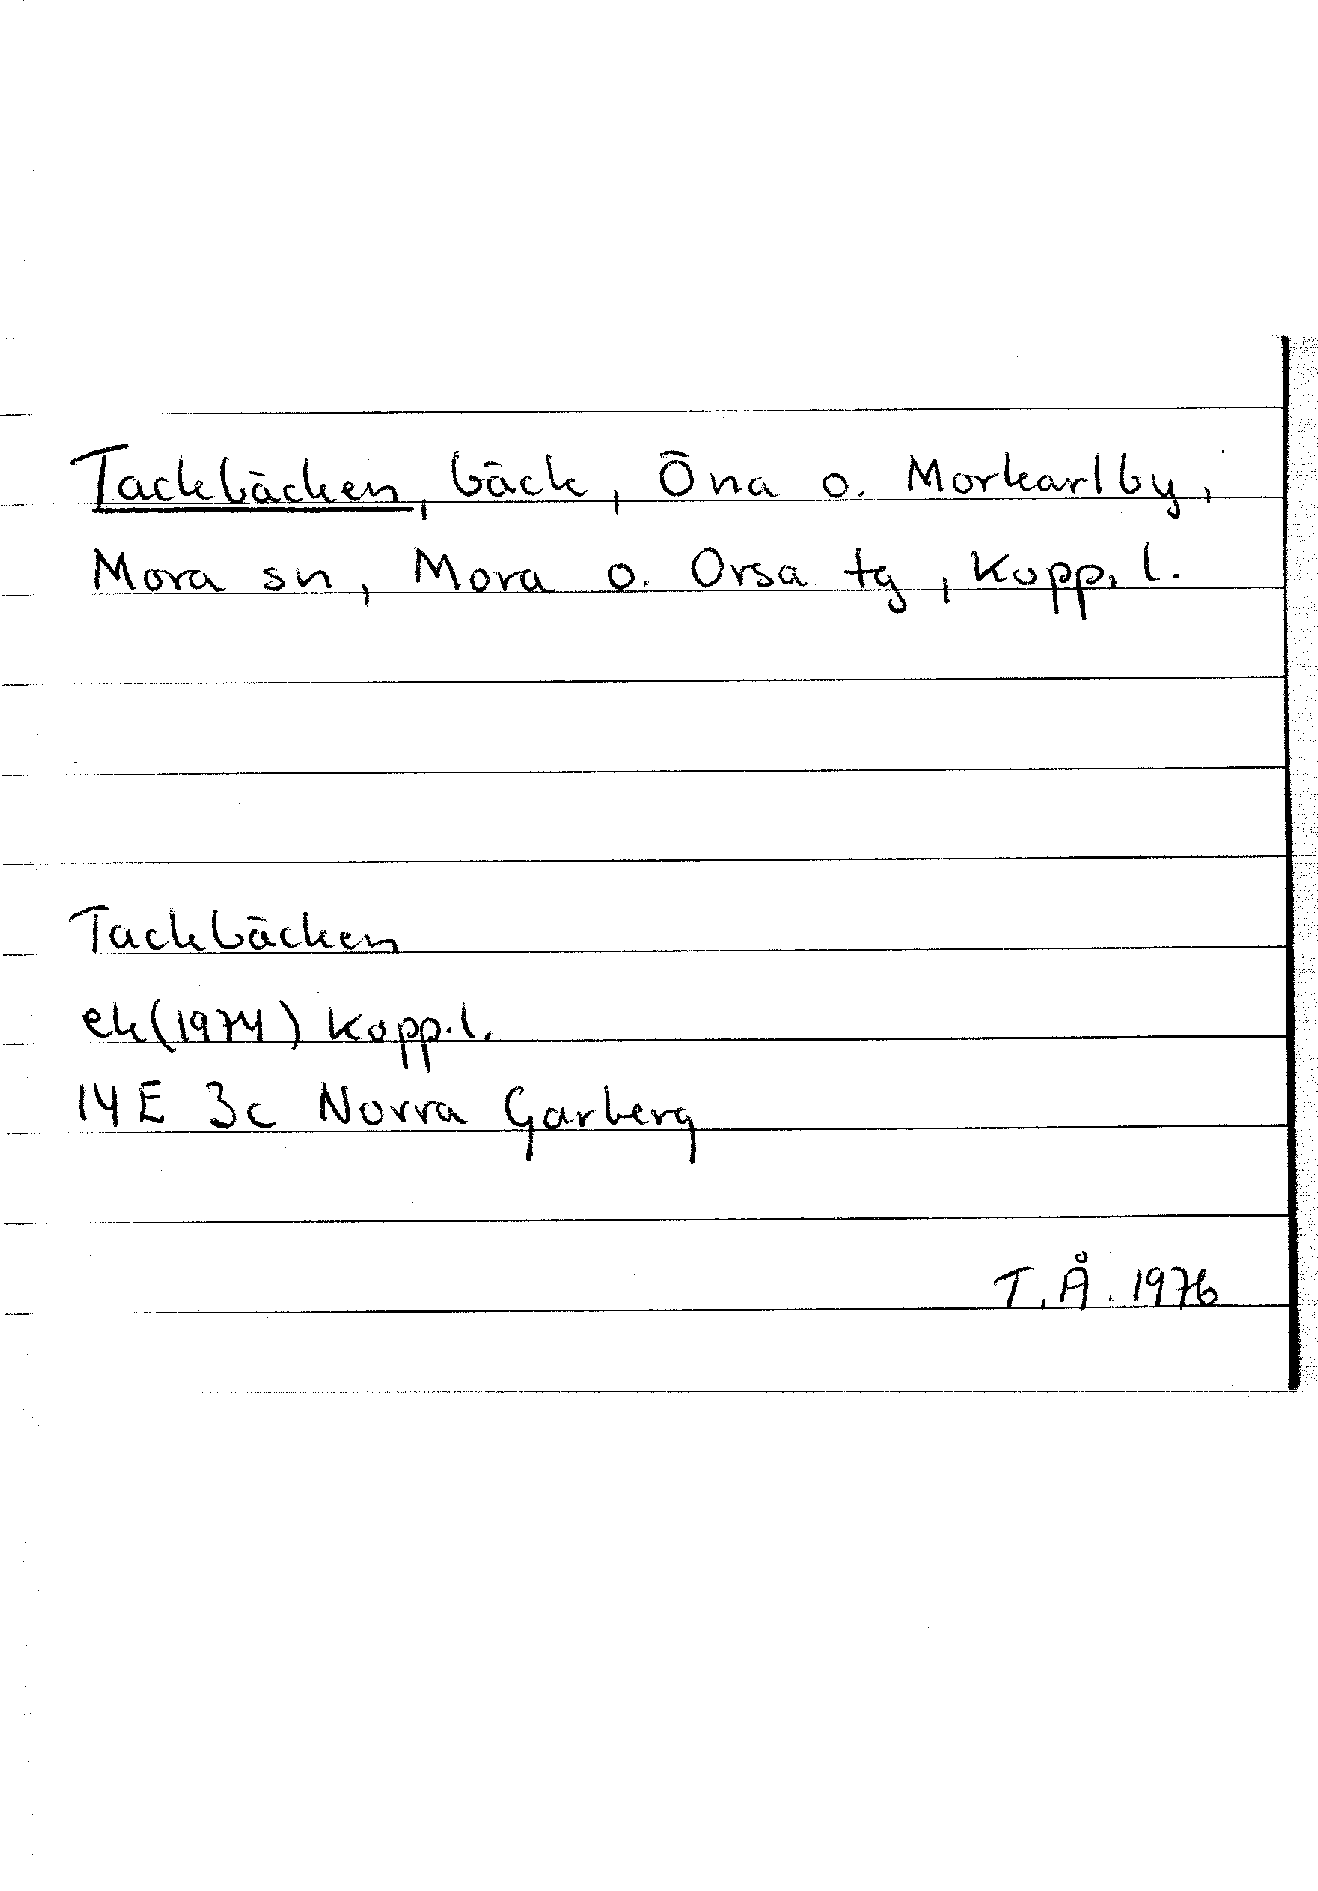 Tackbäcken, bäck, Öna o. Morkarlby,
Mora sn, Mora o. Orsa tg, Kopp. l.
Tackbäcken
ek (1974) Kopp. l.
14 E 3c Norra Garberg
T. Å. 1976